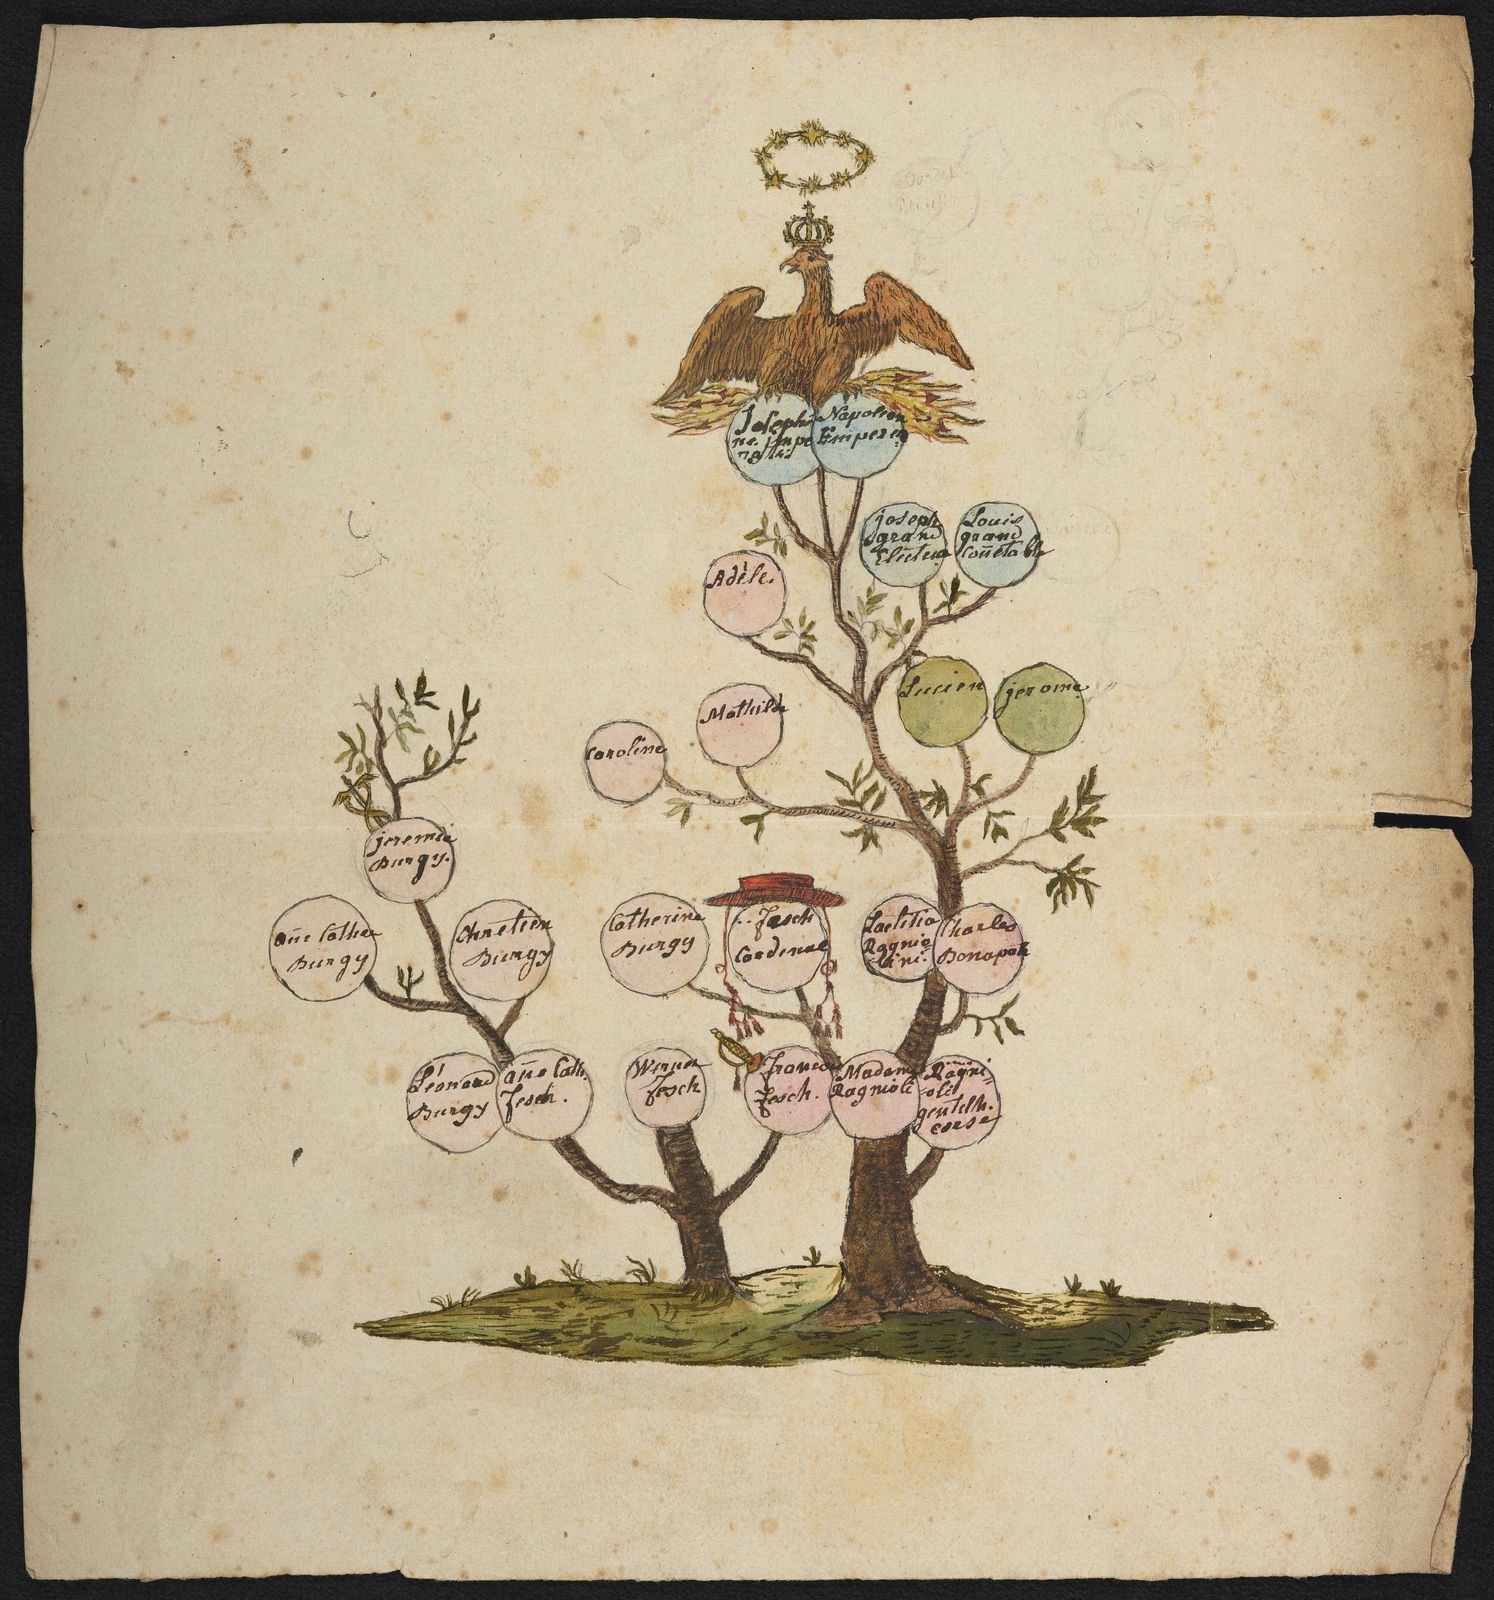 Josephi
ne. Impe
ratris
Napoleon
Empereu
joseph
grand
Electeur
Louis
grand
Coñetable
Adèle.
Lucien
jerome
Mathilde
Caroline
jeremie
Burgy.
añe Cathe
Burgy
Chretien
Burgy
Catherine
Burgy
Fesch
Cardenal
Laetitia
Ragnio
lini.
Charles
Bonapate
Léonard
Burgy
añe Cath.
Fesch.
Werner
Fesch
Francois
Fesch.
Madame
Ragnioli
Ragni=
oli
gentilh.
corse